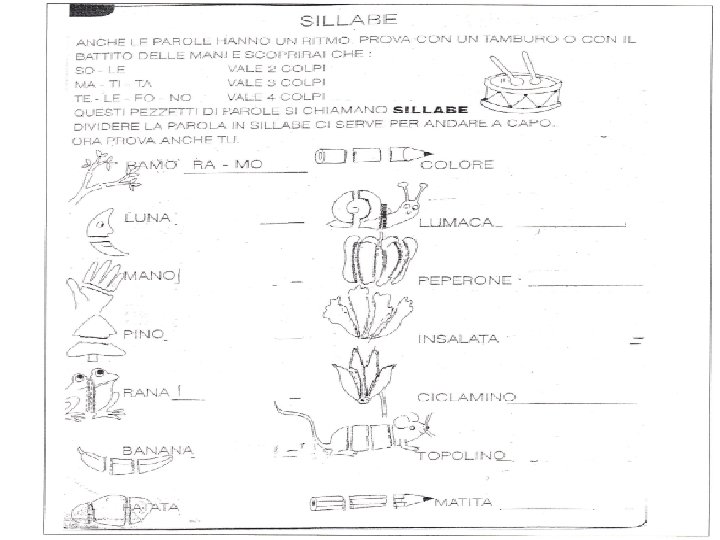 SILLABE
ANCHE LE PAROLE HANNO UN RITMO. PROVA CON UN TAMBURO O CON IL
BATTITO DELLE MANI E SCOPRIRAI CHE :
SO - LE VALE 2 COLPI
MA - TI - TA VALE 3 COLPI
TE - LE - FO - NO VALE 4 COLPI
QUESTI PEZZETTI DI PAROLE SI CHIAMANO SILLABE
DIVIDERE LA PAROLA IN SILLABE CI SERVE PER ANDARE A CAPO.
ORA PROVA ANCHE TU.
RAMO RA - MO
COLORE
LUNA
LUMACA
MANO
PEPERONE
PINO
INSALATA
RANA
CICLAMINO
BANANA
TOPOLINO
MATITA